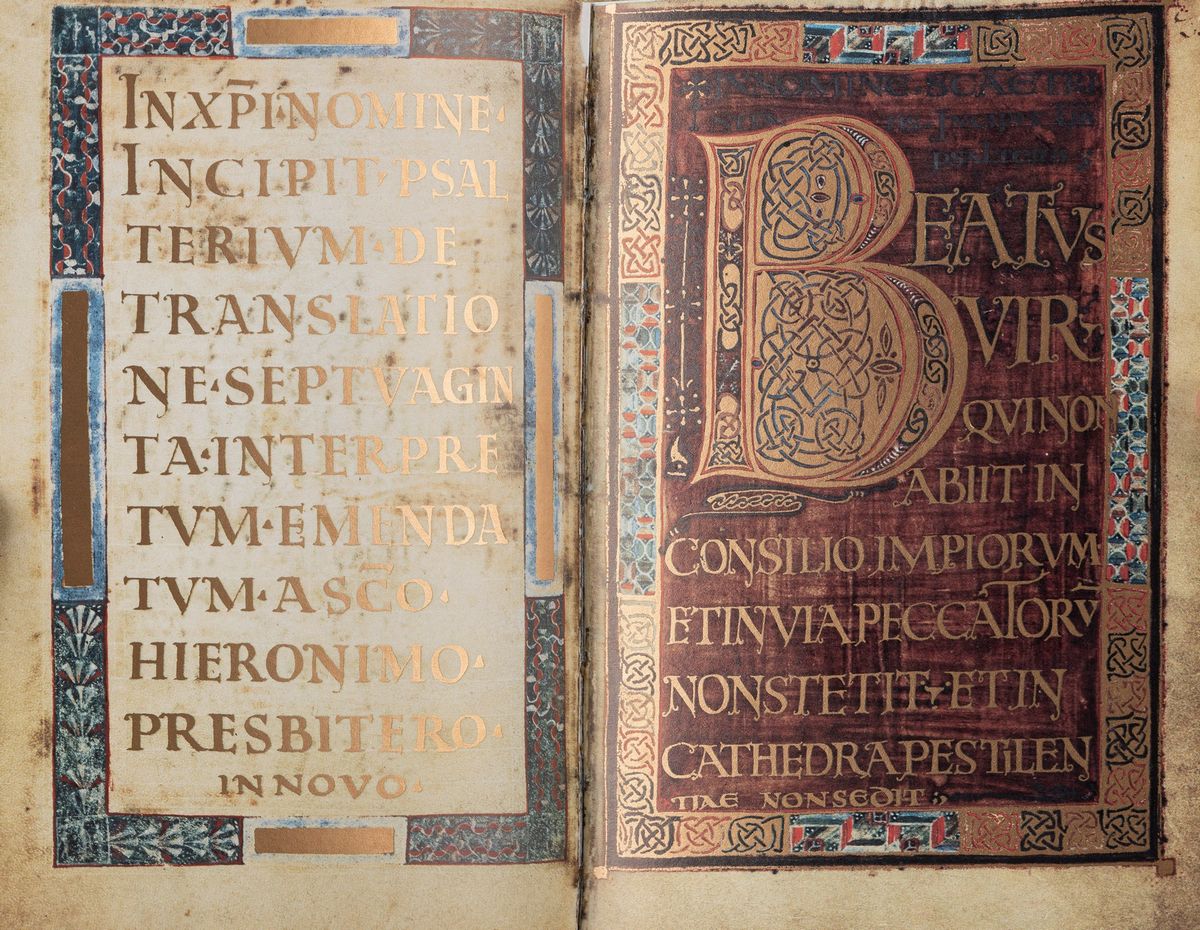 INXP̄I·NOMINE·
INCIPIT·PSAL
TERIVM·DE
TRANSLATIO
NE·SEPTVAGIN
TA·INTERPRE
TVM·EMENDA
TVM·ASC̄O·
HIERONIMO·
PRESBITERO·
INNOVO·
NOMINE SCAE TRI
BEATVS
VIR·
QVINON
ABIIT IN
CONSILIO IMPIORVM
ETINVIAPECCATORV̄
NONSTETIT·ETIN
CATHEDRAPESTILEN
TIAE NONSEDIT:,